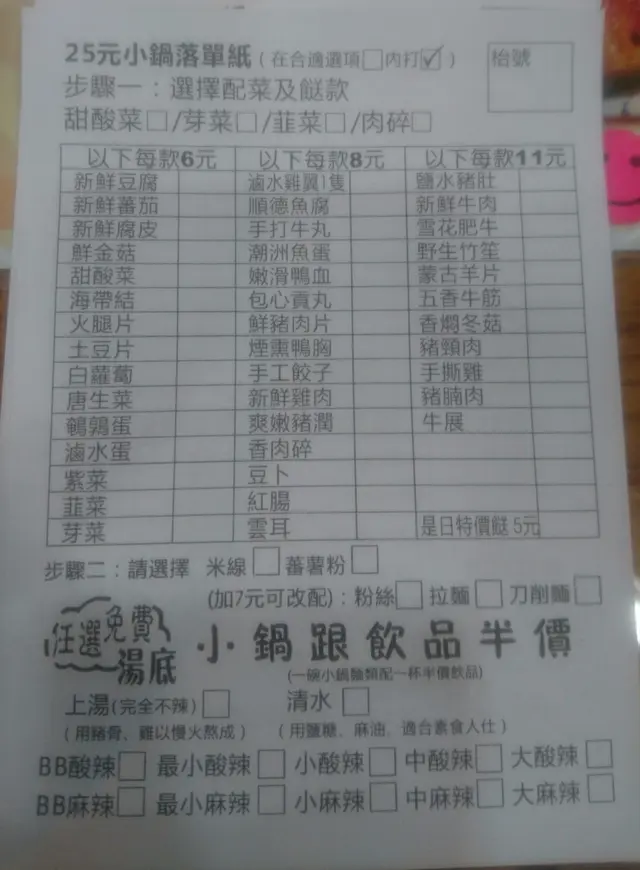 25元小鍋落單紙(在合適選項□內打☑)
枱號
步驟一:選擇配菜及餸款
甜酸菜□/芽菜□/韮菜□/肉碎□
以下每款6元 以下每款8元 以下每款11元
新鮮豆腐 滷水雞翼1隻 鹽水豬肚
新鮮蕃茄 順德魚腐 新鮮牛肉
新鮮腐皮 手打牛丸 雪花肥牛
鮮金菇 潮洲魚蛋 野生竹笙
甜酸菜 嫩滑鴨血 蒙古羊片
海帶結 包心貢丸 五香牛筋
火腿片 鮮豬肉片 香燜冬菇
土豆片 煙熏鴨胸 豬頸肉
白蘿蔔 手工餃子 手撕雞
唐生菜 新鮮雞肉 豬腩肉
鵪鶉蛋 爽嫩豬潤 牛展
滷水蛋 香肉碎
紫菜 豆卜
韮菜 紅腸
芽菜 雲耳 是日特價餸 5元
步驟二:請選擇 米線□ 蕃薯粉□
(加7元可改配):粉絲□ 拉麵□ 刀削麵□
任選免費湯底 小鍋跟飲品半價
(一碗小鍋麵類配一杯半價飲品)
上湯(完全不辣)□ 清水□
(用豬骨、雞以慢火熬成) (用鹽糖、麻油、適合素食人仕)
BB酸辣□ 最小酸辣□ 小酸辣□ 中酸辣□ 大酸辣□
BB麻辣□ 最小麻辣□ 小麻辣□ 中麻辣□ 大麻辣□